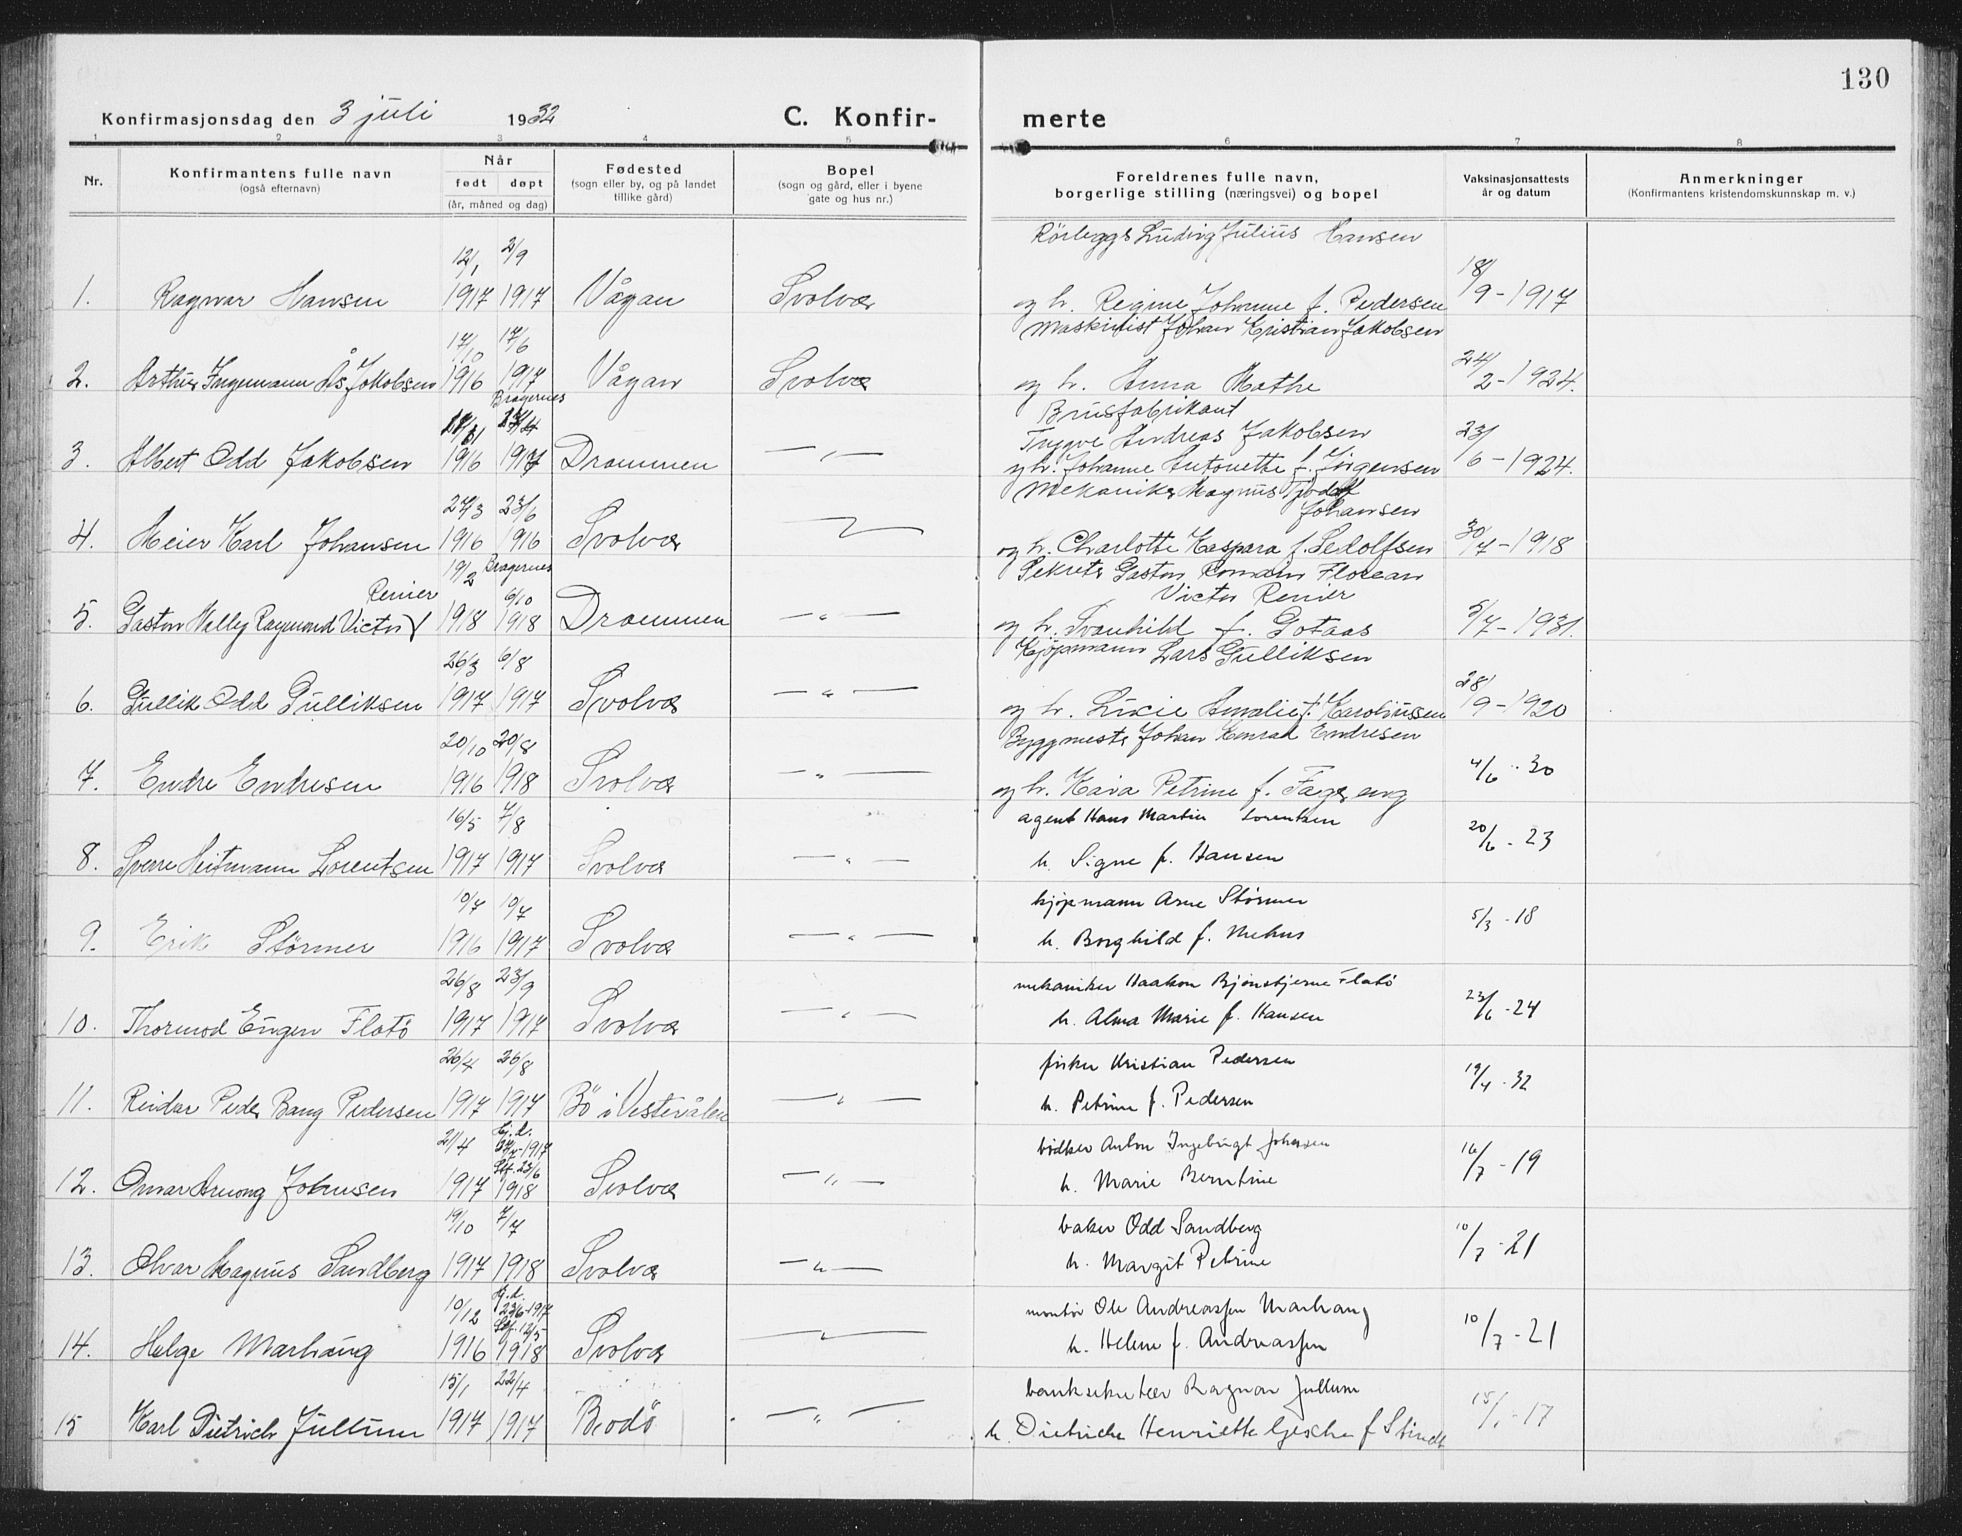 130
Konfirmasjonsdag den 3 juli 1932 C. Konfir- merte
1 2 3 4 5 6 7 8
Nr. Konfirmantens fulle navn (også efternavn) Når født døpt (år, måned og dag) Fødested (sogn eller by, og på landet tillike gård) Bopel (sogn og gård, eller i byene gate og hus nr.) Foreldrenes fulle navn, borgerlige stilling (næringsvei) og bopel Vaksinasjonsattests år og datum Anmerkninger (Konfirmantens kristendomskunnskap m. v.)
12/1 2/9 Rörleggs Ludvig Julius Hansen
1. Ragnar Hansen 1917 1917 Vågan Svolvær og h. Regine Johanne f. Pedersen 18/9-1917
17/10 17/6 Maskinist Johan Kristian Jakobsen
2. Arthur Ingemann Ås. Jakobsen 1916 1917 Vågan Svolvær og h. Anna Mathe 24/2-1924.
Bragernes Brusfabrikant
Trygve Andreas Jakobsen
3. Albert Odd Jakobsen 1916 1917 Drammen —"— og h. Johanne Antonette f. Jörgensen 23/6-1924.
27/3 23/6 Mekaniker Magnus Johansen
4. Meier Karl Johansen 1916 1916 Svolvær og h. Charlotte Kaspara f. Sedolfsen 30/7-1918
19/2 Bragernes 6/10 Sekretr Gaston Romain Florean
Renier Victor Renier
5. Gaston Willy Raymond Victor 1918 1918 Drammen —"— og h. Svanhild f. Gotaas 5/7-1931.
26/3 6/8 Kjöpmann Lars Gulliksen
6. Gullik Odd Gulliksen 1917 1917 Svolvær —"— og h. Lucie Amalie f. Karoliussen 28/9-1920
20/10 20/8 Byggmestr Johan Konrad Endresen
7. Endre Endresen 1916 1918 Svolvær —"— og h. Kaia Petrine f. Fagereng 4/6-30
16/5 7/8 agent Hans Martin Lorentsen
8. Sverre Heitmann Lorentsen 1917 1917 Svolvær —"— h. Signe f. Hansen 20/6-23
10/7 10/7 kjöpmann Arne Störmer
9. Erik Störmer 1916 1917 Svolvær —"— h. Borghild f. Mehus 5/3-18
26/8 23/9 mekaniker Haakon Bjönstjerne Flatö
10. Thormod Eugen Flatö 1917 1917 Svolvær —"— h. Alma Marie f. Hansen 23/6-24
26/4 26/8 fisker Kristian Pedersen
11. Reidar Peder Bang Pedersen 1917 1917 Bö i Vesterålen —"— h. Petrine f. Pedersen 19/4-32
21/4 Hj.d. 1917 Stf. 23/6 bödker Anton Ingebrigt Johnsen
12. Omar Arnong Johnsen 1917 1918 Svolvær —"— h. Marie Berntine 16/7-19
19/10 7/7 baker Odd Sandberg
13. Olvar Magnus Sandberg 1917 1918 Svolvær —"— h. Margit Petrine 10/7-21
10/12 Hj.d. 23/6-1917 Stf. 12/5 montör Ole Andreassen Marhaug
14. Helge Marhaug 1916 1918 Svolvær —"— h. Helene f. Andreassen 10/7-21
15/1 22/4 banksekretær Ragnar Jullum
15 Karl Dietrich Jullum 1917 1917 Bodö —"— h. Dietriche Henriette Gesche f Stindt 15/1-17